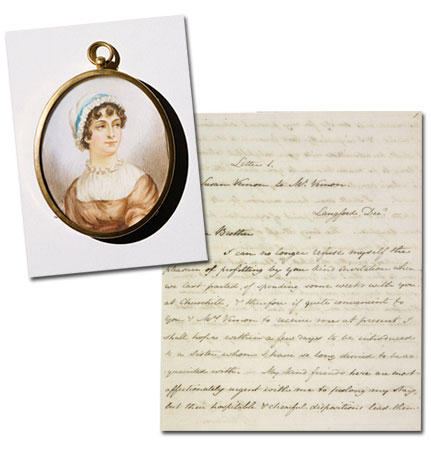 Letter 1.
Susan Vernon to Mr. Vernon.
Langford, Decr.
Brother
I can no longer refuse myself the
pleasure of profitting by your kind invitation when
we last parted of spending some weeks with you
at Churchill, & therefore if quite convenient to
you & Mrs Vernon to receive me at present, I
shall hope within a few days to be introduced
to a Sister whom I have so long desired to be ac-
quainted with. My kind friends here are most
affectionately urgent with me to prolong my stay,
but their hospitable & chearful dispositions lead them